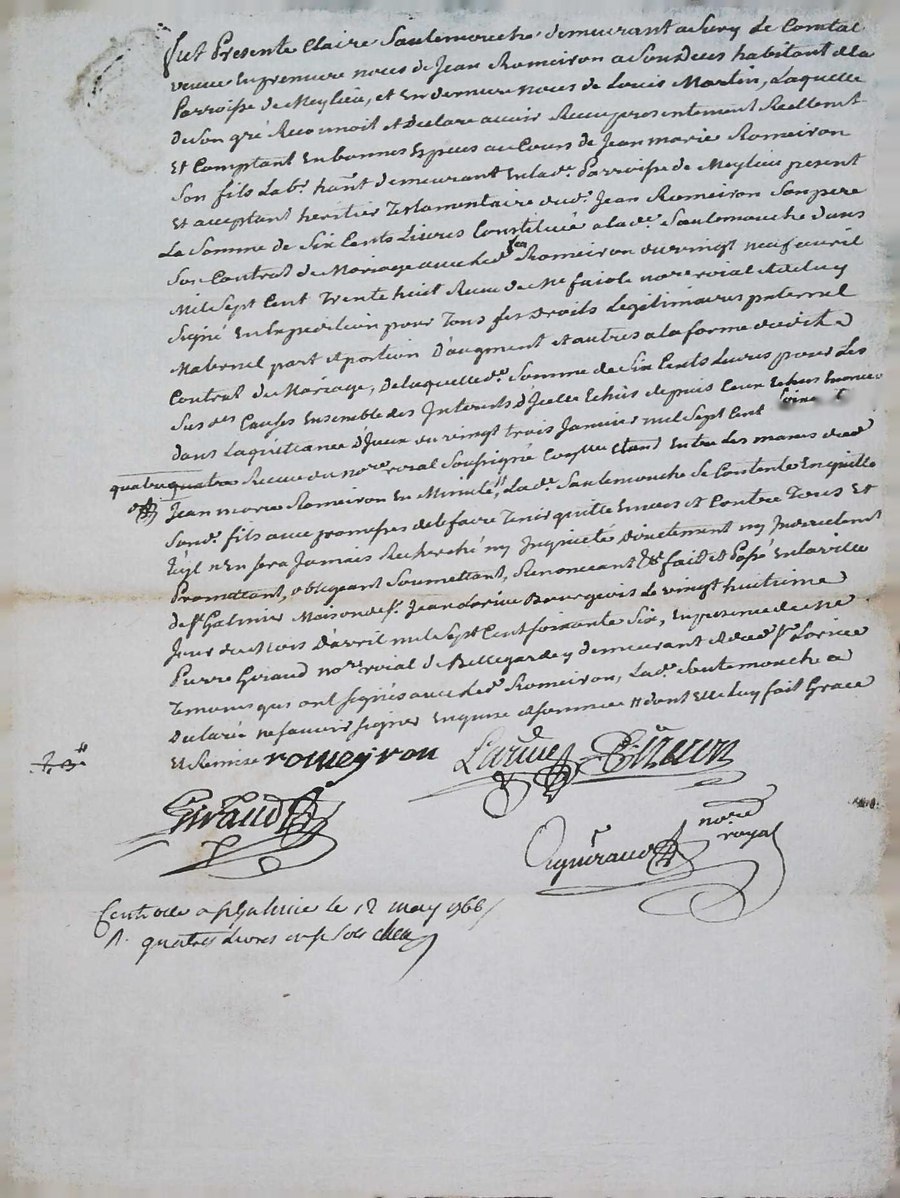 fut Presente Claire Soulemouche demeurant a Sury Le Comtal
veuve En premiere noces de Jean Romeiron a Son Deces habitant de la
Parroisse de Meylieu, et En derniere noces de Louis Martin, Laquelle
de Son gré Reconnoit et Declare avoir Receu presentement Reellemt
Et Comptant En bonnes Especes au Cours de Jean marie Romeiron
Son fils Labr hant demeurant En lade Parroisse de Meylieu present
Et aceptant heritier Testamentaire dudt Jean Romeiron Son pere
La Somme de Six Cents Livres Constituée a lade Soulemouche dans
Son Contrat de Mariage avec Led Jean Romeiron du vingt neuf avril
Mil Sept Cent Trente huit Receu de Me faiole nore roial et de luy
Signé En Expedition pour Tous ses Droits Legitimaires paternel
Maternel part et portion D'augment et autres a la forme dudit
Contrat de Mariage, De laquelle de Somme de Six Cents Livres pour Les
Sus des Causes Ensemble des Interets D'Icelle Echus depuis Ceux Echus Enoncés
dans La quittance D'Iceux du vingt trois Janvier mil Sept Cent soixante
quatre quatre Receue du nore roial Soussigné Etant Entre Les mains dud
Jean marie Romeiron En Minute, Lade Soulemouche Se Contente En quitte
Sond fils avec promesses de le faire Tenir quitte Envers et Contre Tous Et
qu'il n'En Sera Jamais Recherché ny Inquieté directement ny Indirectemt
Promettant, obligeant Soumettant, Renonceant &c fait et Passé En la ville
de St Galmier Maison de Sr Jean Larive Bourgeois Le vingt huitieme
Jour du Mois D'avril mil Sept Cent soixante Six, En presence de Me
Pierre Giraud nore roial de Bellegarde y demeurant et dud Sr Larive
Temoins qui ont signés avec Led Romeiron, Lade Soulemouche a
Declaré ne sçavoir signer Enquise et sommée dont Elle luy fait Grace
Et Remise romeyron Larive
Giraud
nore
royal
Controllé a St Galmier le 12 may 1766
R. quatre Livres sols